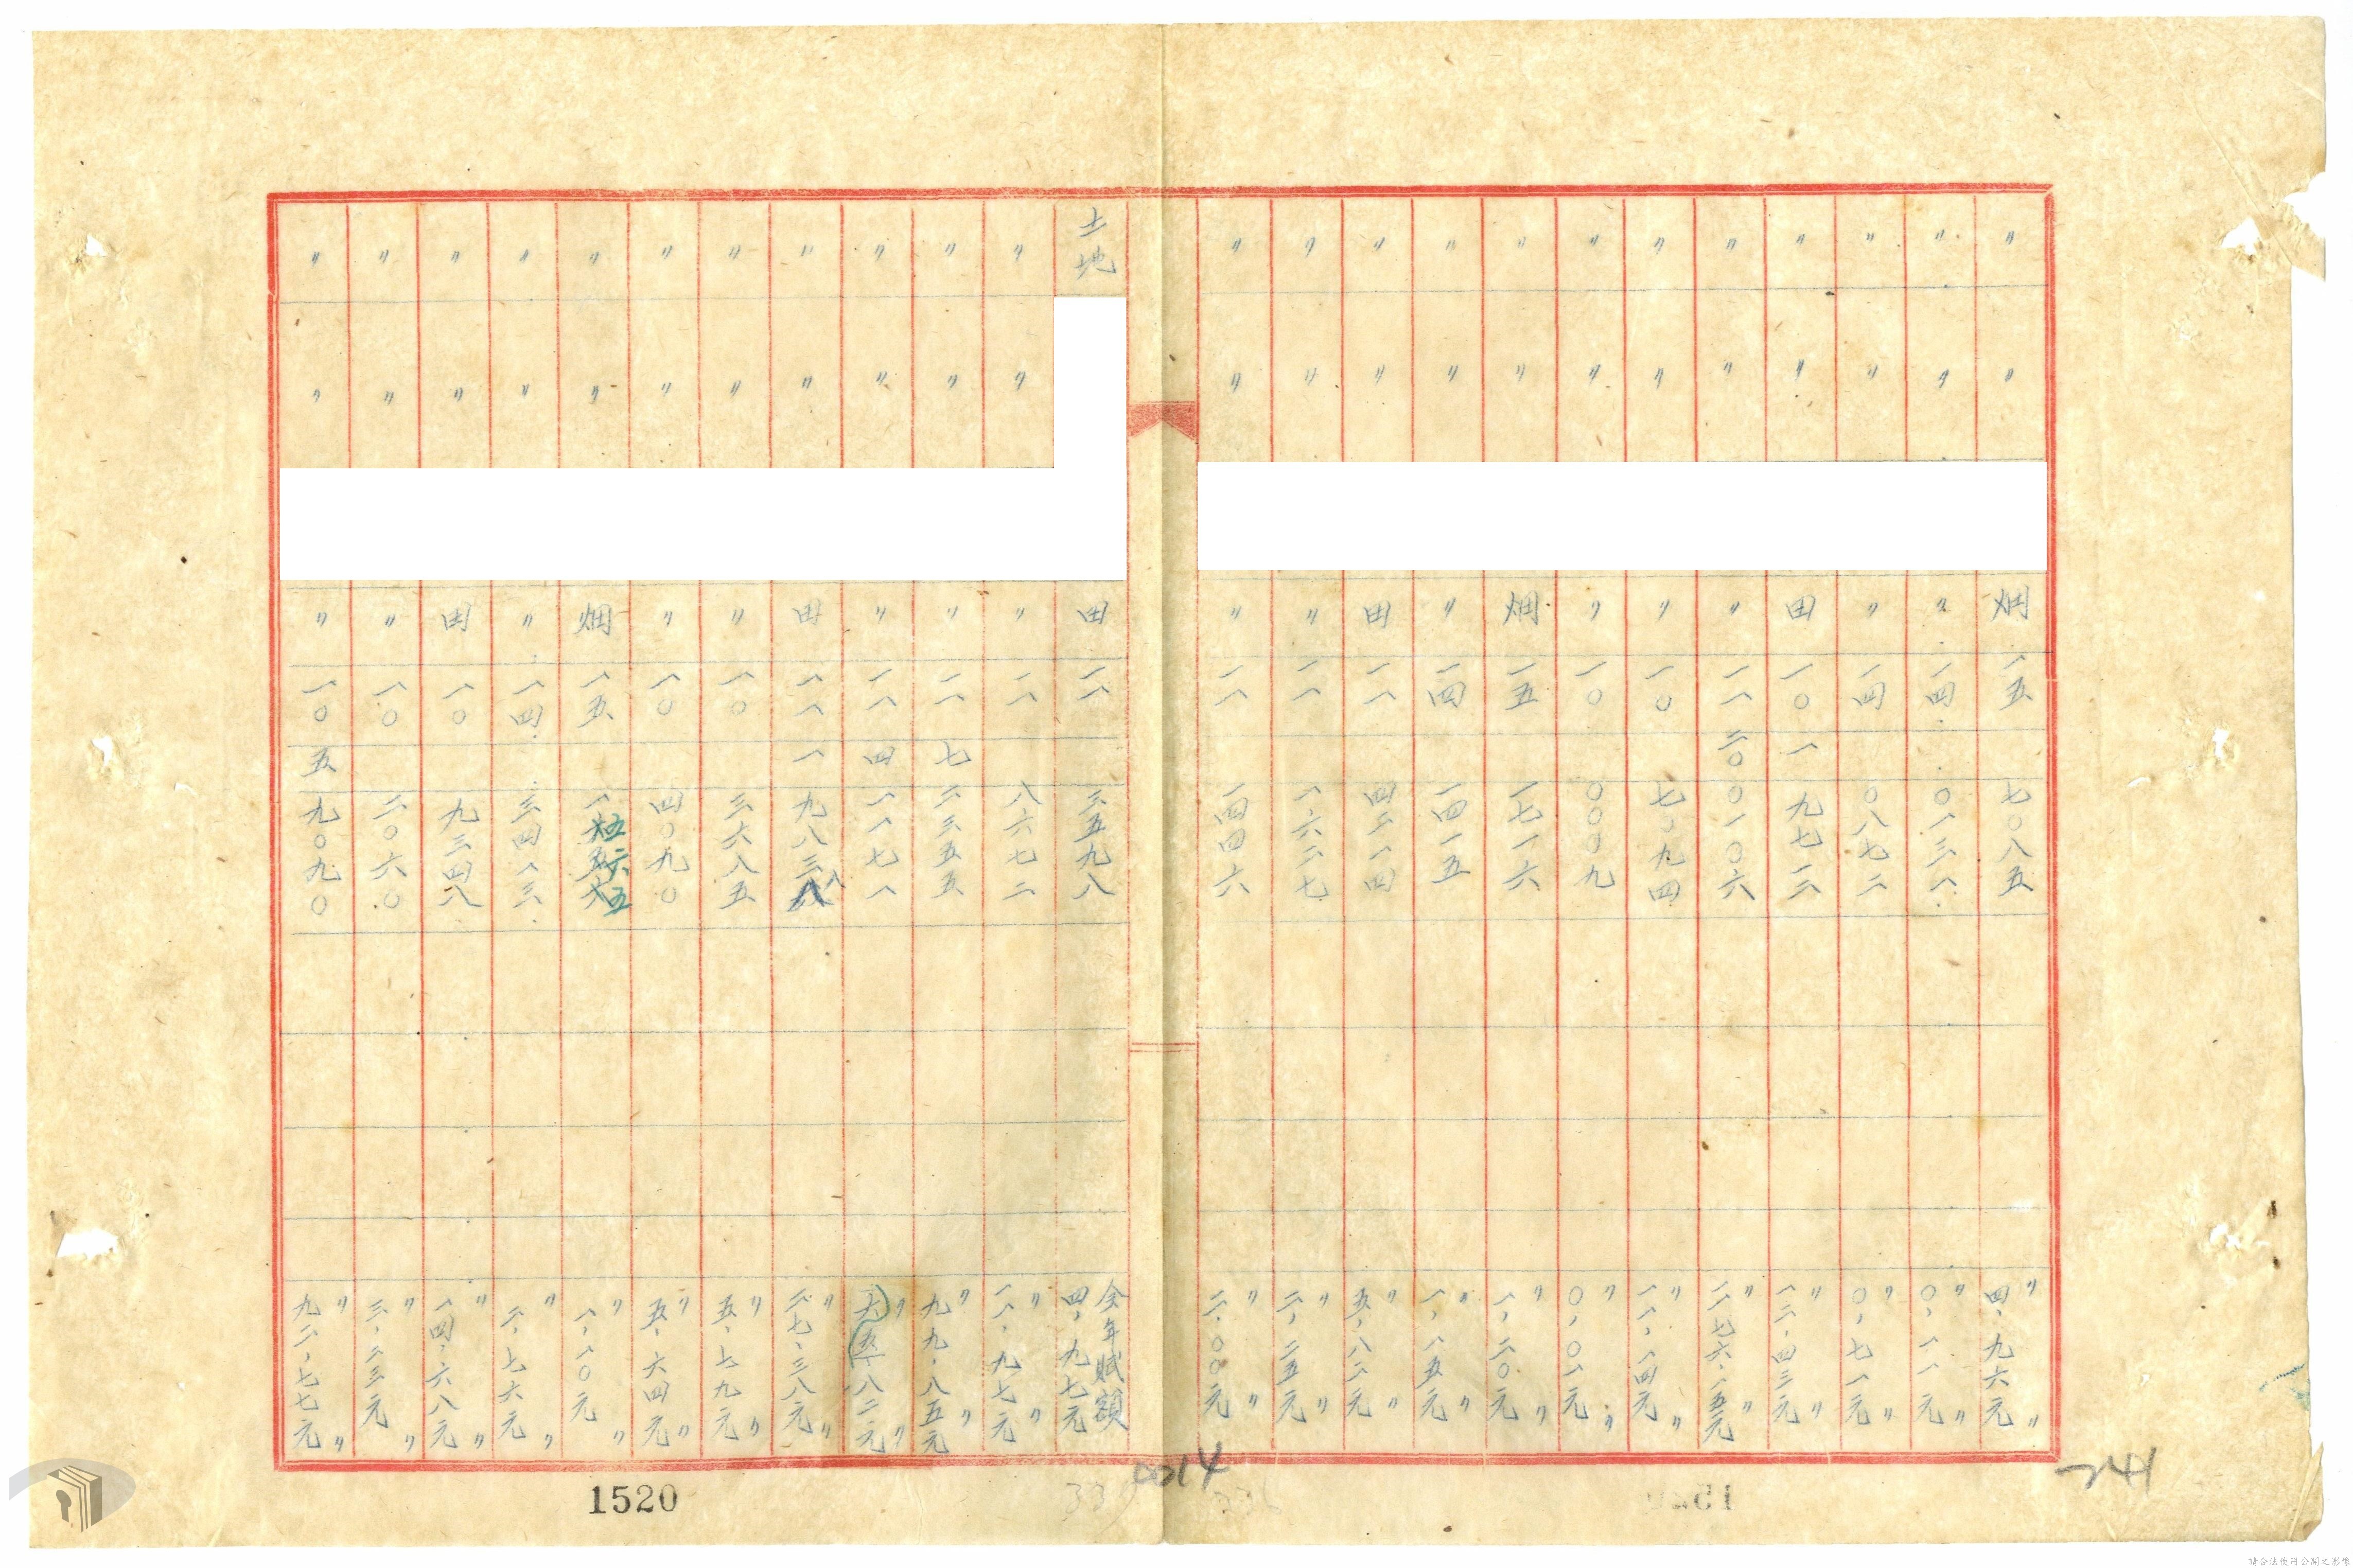 〃 〃 畑 一五 七〇八五 〃 四、九六元 〃
〃 〃 〃 一四 〇一三一 〃 〇、一一元 〃
〃 〃 〃 一四 〇八七二 〃 〇、七一元 〃
〃 〃 田 一〇 一 九七一二 〃 一二、四三元 〃
〃 〃 〃 一一 二〇 〇一〇六 〃 二七六、一五元 〃
〃 〃 〃 一〇 七、九四 〃 一一、一四元 〃
〃 〃 〃 一〇 〇〇〇九 〃 〇、〇一元 〃
〃 〃 畑 一五 一七一六 〃 一、二〇元 〃
〃 〃 〃 一四 一四一五 〃 一、一五元 〃
〃 〃 田 一一 四二一四 〃 五、八二元 〃
〃 〃 〃 一一 一六二七 〃 二、二五元 〃
〃 〃 〃 一一 一四四六 〃 二、〇〇元 〃
土地 田 一一 三五九八 全年賦額 四、九七元
〃 〃 〃 一一 八六七二 〃 一一、九七元 〃
〃 〃 〃 一一 七 二三五五 〃 九九、八五元 〃
〃 〃 〃 一一 四 一一七一 〃 八二元 〃
〃 〃 田 一一 一 九八三八 〃 二七、三八元 〃
〃 〃 〃 一〇 三六八五 〃 五、七九元 〃
〃 〃 〃 一〇 四〇九〇 〃 五、六四元 〃
〃 〃 畑 一五 一五六五 〃 一、一〇元 〃
〃 〃 〃 一四 三四一三 〃 二、七六元 〃
〃 〃 田 一〇 九三四八 〃 一四、六八元 〃
〃 〃 〃 一〇 二〇六〇 〃 三、二三元 〃
〃 〃 〃 一〇 五 九〇九〇 〃 九二、七七元 〃
1520
0014
741
請合法使用公開之影像